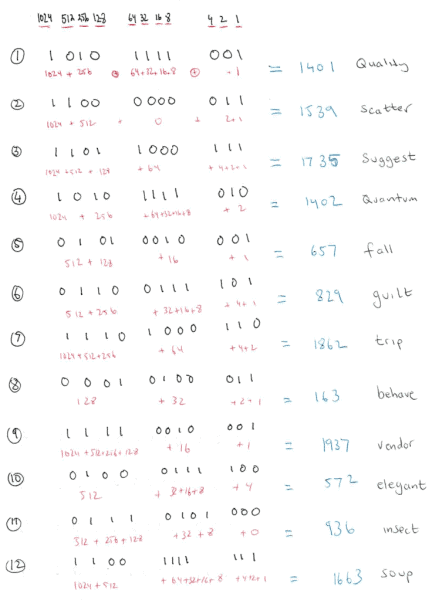 1024 512 256 128 64 32 16 8 4 2 1
① 1 0 1 0 1 1 1 1 0 0 1
1024 + 256 + 64+32+16+8 + +1 = 1401 Quality
② 1 1 0 0 0 0 0 0 0 1 1
1024 + 512 + 0 + 2+1 = 1539 Scatter
③ 1 1 0 1 1 0 0 0 1 1 1
1024 + 512 + 128 + 64 + 4+2+1 = 1735 Suggest
④ 1 0 1 0 1 1 1 1 0 1 0
1024 + 256 + 64+32+16+8 + 2 = 1402 Quantum
⑤ 0 1 0 1 0 0 1 0 0 0 1
512 + 128 + 16 + 1 = 657 fall
⑥ 0 1 1 0 0 1 1 1 1 0 1
512 + 256 + 32+16+8 + 4+1 = 829 guilt
⑦ 1 1 1 0 1 0 0 0 1 1 0
1024+512+256 + 64 +4+2 = 1862 trip
⑧ 0 0 0 1 0 1 0 0 0 1 1
128 + 32 +2+1 = 163 behave
⑨ 1 1 1 1 0 0 1 0 0 0 1
1024 + 512+256+128 + 16 +1 = 1937 vendor
⑩ 0 1 0 0 0 1 1 1 1 0 0
512 + 32+16+8 + 4 = 572 elegant
⑪ 0 1 1 1 0 1 0 1 0 0 0
512 + 256 + 128 + 32 + 8 +0 = 936 insect
⑫ 1 1 0 0 1 1 1 1 1 1 1
1024 + 512 + 64+32+16+8 +4+2+1 = 1663 Soup